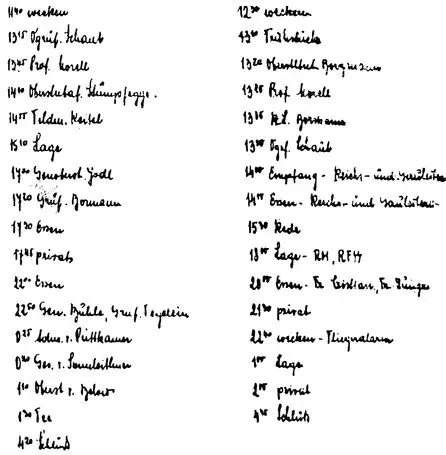 11⁴⁰ wecken
13¹⁵ Ogruf. Schaub
13⁴⁵ Prof. Morell
14¹⁰
14⁵⁵ Feldm. Keitel
15¹⁰ Lage
17²⁰ Genoberst Jodl
17²⁰ Gruf. Bormann
17³⁰ Essen
17⁴⁵ privat
22⁰⁰ Essen
22⁵⁰ Gen. Buhle, Gruf. Fegelein
0²⁵ v. Puttkamer
0³⁰ Ges. v. Sonnleithner
1¹⁰ Oberst v. Below
1³⁰ Tee
4²⁰ Schluß
12³⁰ wecken
13⁰⁰ Frühstück
13²⁰ Oberstltnt. Borgmann
13²⁵ Prof. Morell
13³⁵ R.L. Bormann
13⁵⁰ Ogrf. Schaub
14⁰⁰ Empfang - Reichs- und Gauleiter
14¹⁵ Essen - Reichs- und Gauleiter
15³⁰ Rede
18⁰⁵ Lage - RM, RFSS
20⁰⁵ Essen -
21³⁰ privat
22⁰⁰ wecken - Fliegeralarm
1⁰⁰ Lage
2⁰⁵ privat
4²⁵ Schluß